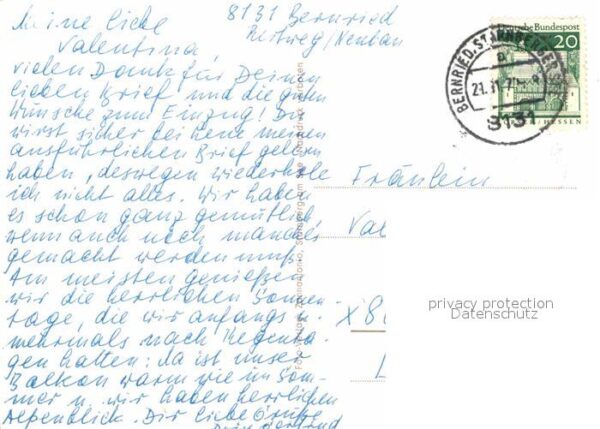 Meine liebe
Valentina,
vielen Dank für Deinen
lieben Brief und die guten
Wünsche zum Einzug! Du
wirst sicher bei Irene meinen
ausführlichen Brief gelesen
haben, deswegen wiederhole
ich nicht alles. Wir haben
es schon ganz gemütlich,
wenn auch noch manches
gemacht werden muß.
Am meisten genießen
wir die herrlichen Sonnen-
tage, die wir anfangs u.
mehrmals nach Regenta-
gen hatten: da ist unser
Balkon warm wie im Som-
mer u. wir haben herrlichen
Alpenblick. Dir liebe Grüße
8131 Bernried
/Neubau
Deutsche Bundespost
20
HESSEN
BERNRIED, STARNBERGER
21.11.
8131
Fräulein
Val
X 8
privacy protection
Datenschutz